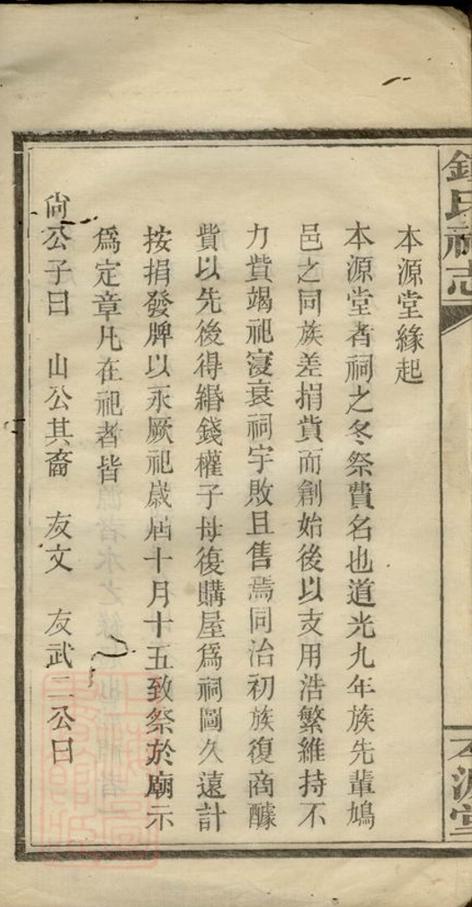 鍾氏祠志
本源堂
本源堂緣起
本源堂者祠之冬祭費名也道光九年族先輩鳩
邑之同族差捐貲而創始後以支用浩繁維持不
力貲竭祀寖衰祠宇敗且售焉同治初族復商醵
貲以先後得緡錢權子母復購屋爲祠圖久遠計
按捐發牌以永厥祀歲届十月十五致祭於廟示
爲定章凡在祀者皆
尙公子曰 山公其裔 友文 友武二公曰